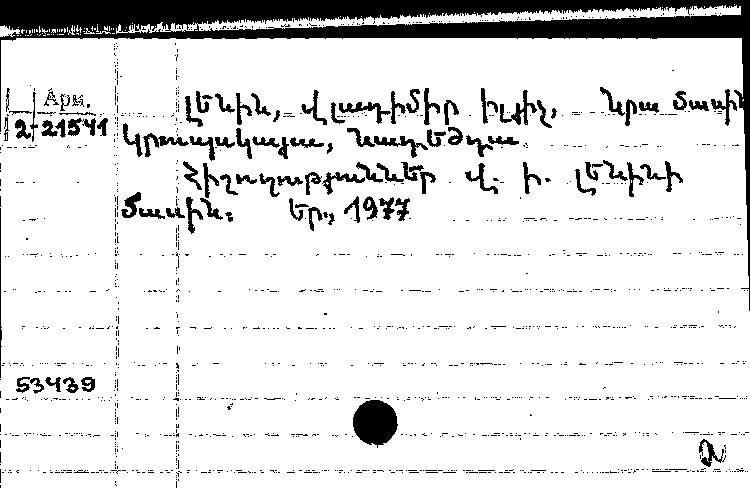 Арм.
2-21541
Լենին, Վլադիմիր Իլյիչ, նրա մասին
Կրուպսկայա, Նադեժդա
Հիշողություններ Վ. Ի. Լենինի
մասին: Եր., 1977
53439